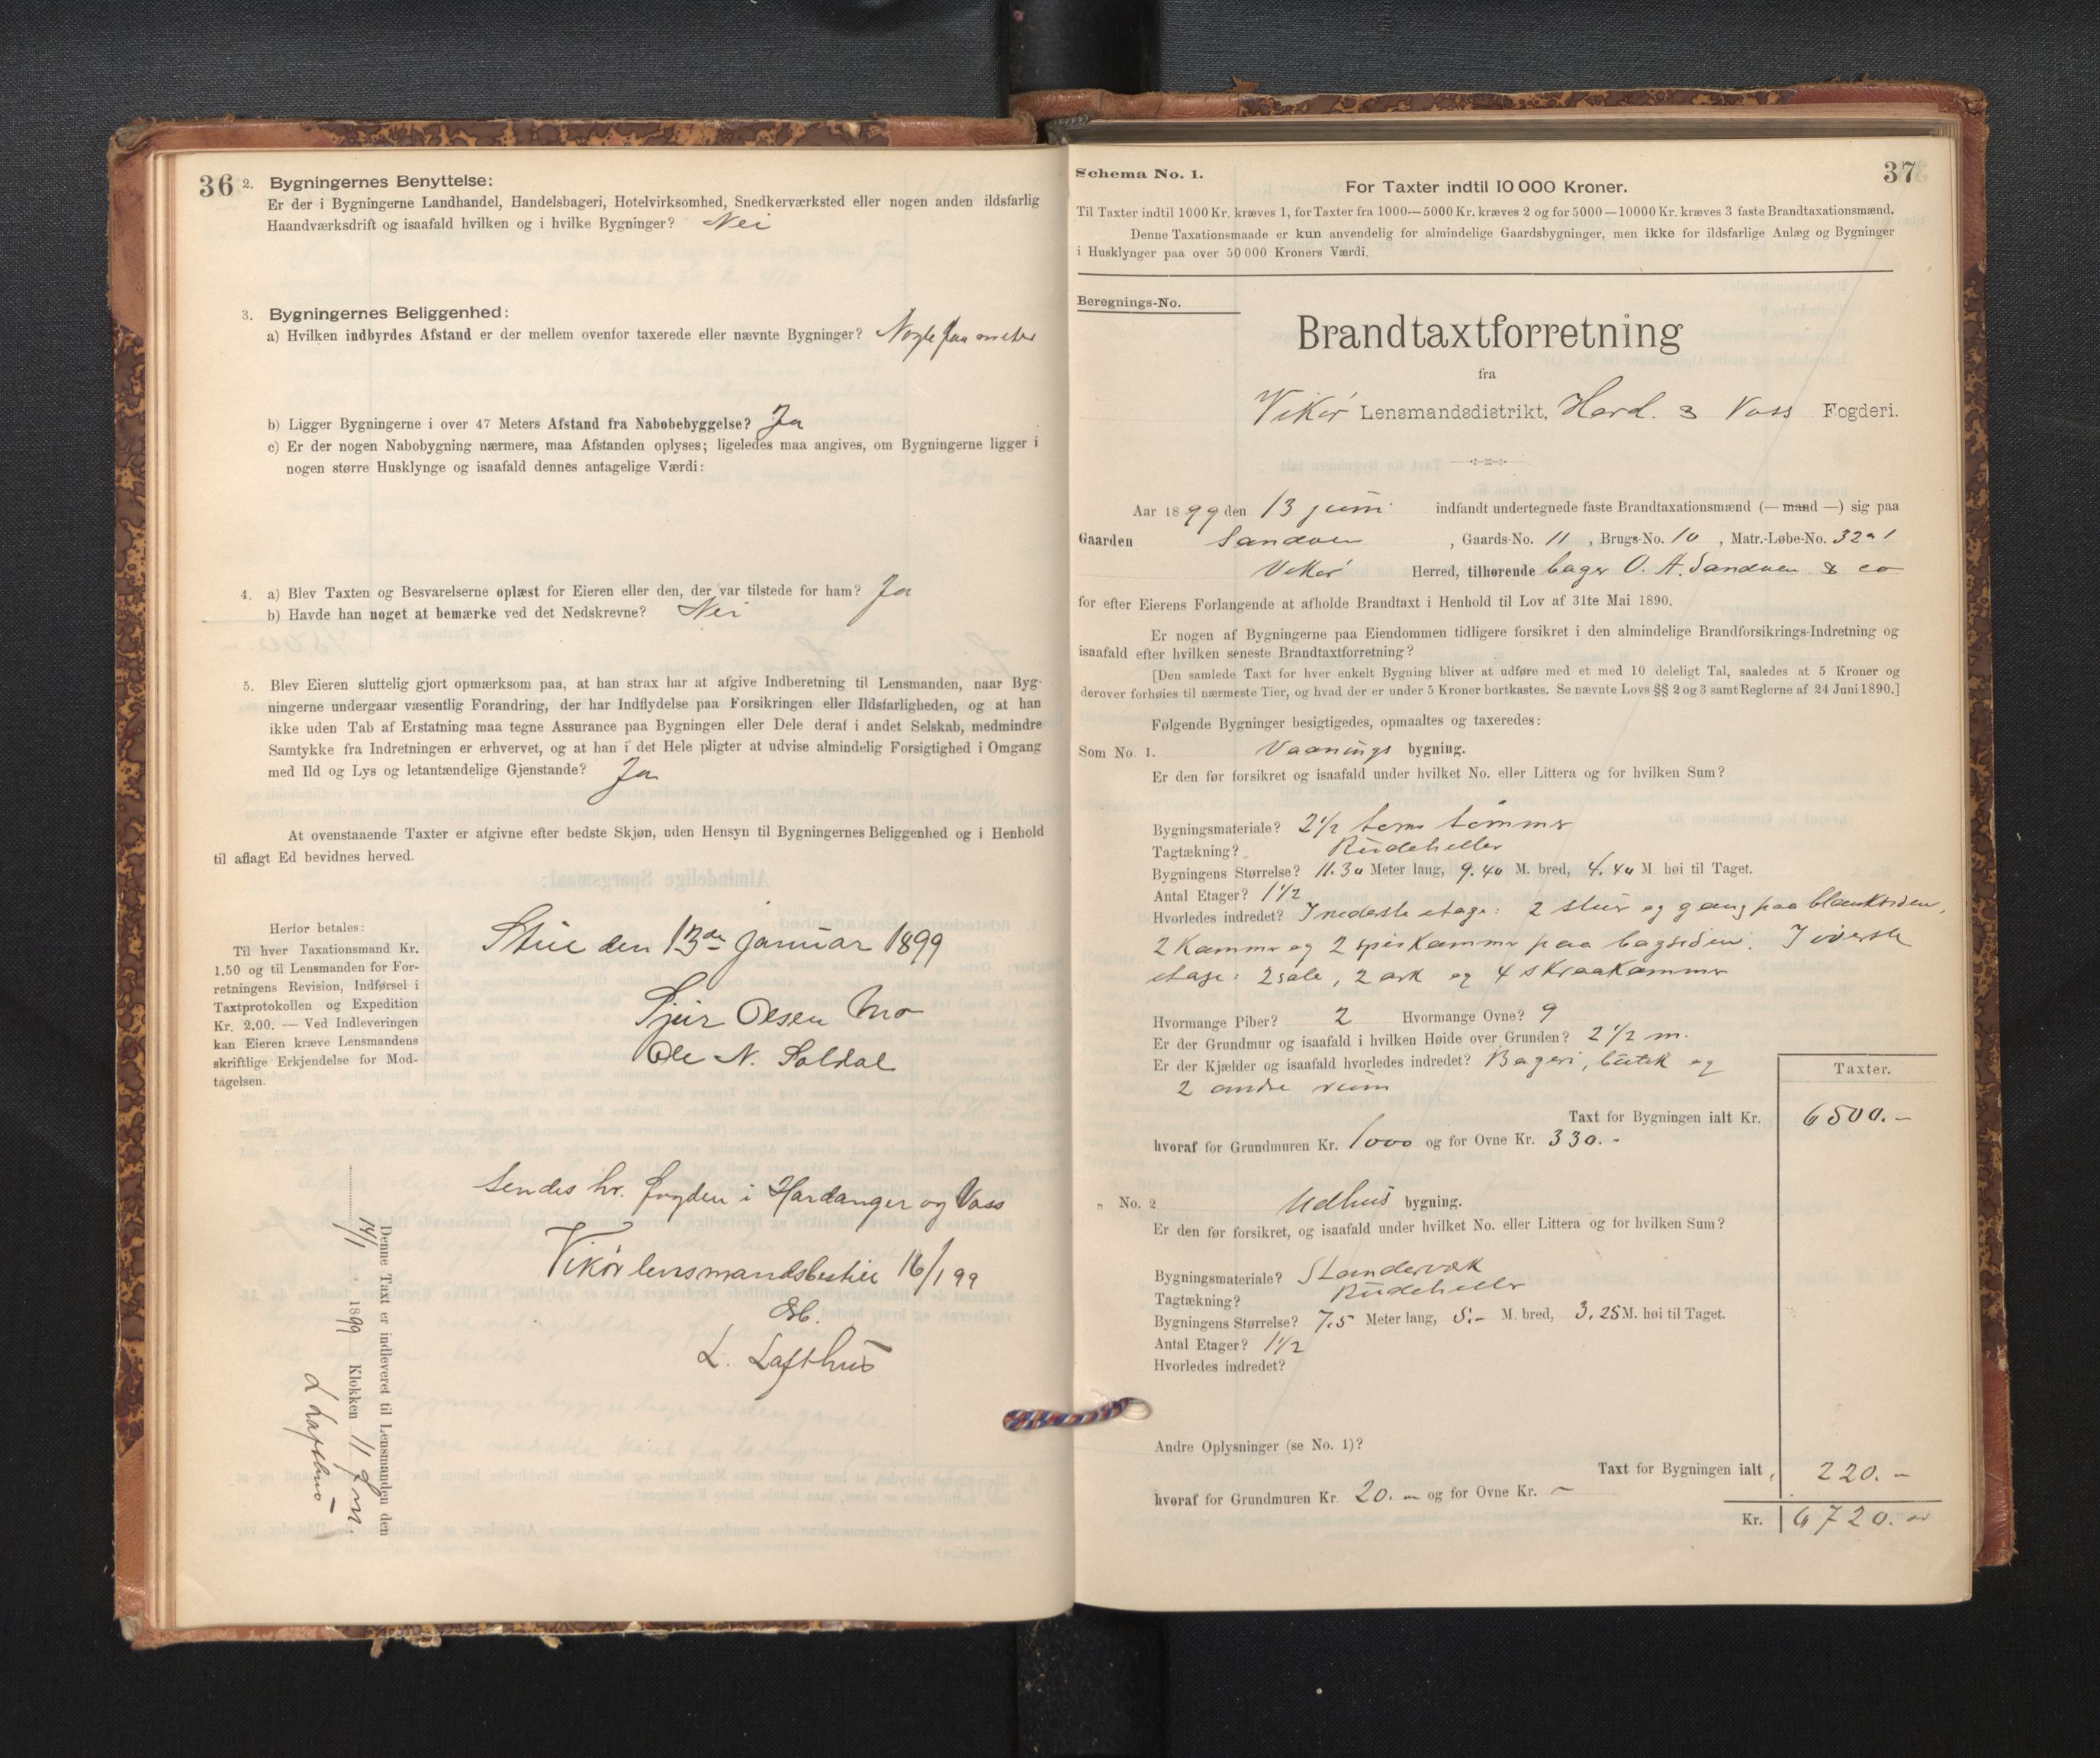 36
2. Bygningernes Benyttelse:
Er der i Bygningerne Landhandel, Handelsbageri, Hotelvirksomhed, Snedkerværksted eller nogen anden ildsfarlig
Haandværksdrift og isaafald hvilken og i hvilke Bygninger? Nei
3. Bygningernes Beliggenhed:
a) Hvilken indbyrdes Afstand er der mellem ovenfor taxerede eller nævnte Bygninger? Nogle faa meter
b) Ligger Bygningerne i over 47 Meters Afstand fra Nabobebyggelse? Ja
c) Er der nogen Nabobygning nærmere, maa Afstanden oplyses; ligeledes maa angives, om Bygningerne ligger i
nogen større Husklynge og isaafald dennes antagelige Værdi:
4. a) Blev Taxten og Besvarelserne oplæst for Eieren eller den, der var tilstede for ham? Ja
b) Havde han noget at bemærke ved det Nedskrevne? Nei
5. Blev Eieren sluttelig gjort opmærksom paa, at han strax har at afgive Indberetning til Lensmanden, naar Byg-
ningerne undergaar væsentlig Forandring, der har Indflydelse paa Forsikringen eller Ildsfarligheden, og at han
ikke uden Tab af Erstatning maa tegne Assurance paa Bygningen eller Dele deraf i andet Selskab, medmindre
Samtykke fra Indretningen er erhvervet, og at han i det Hele pligter at udvise almindelig Forsigtighed i Omgang
med Ild og Lys og letantændelige Gjenstande? Ja
At ovenstaaende Taxter er afgivne efter bedste Skjøn, uden Hensyn til Bygningernes Beliggenhed og i Henhold
til aflagt Ed bevidnes herved.
Herfor betales:
Til hver Taxationsmand Kr.
1.50 og til Lensmanden for For-
retningens Revision, Indførsel i
Taxtprotokollen og Expedition
Kr. 2.00. — Ved Indleveringen
kan Eieren kræve Lensmandens
skriftlige Erkjendelse for Mod-
tagelsen.
den 13de januar 1899
Sjur Olsen Mo
Ole N. Soldal
Sendes hr. fogden i Hardanger og Voss
Vikør lensmandsbestil 16/1 99
L. Lofthus
Denne Taxt er indleveret til Lensmanden den
14/1 1899 Klokken 11 fm.
L Lofthus
37
Schema No. 1.
For Taxter indtil 10 000 Kroner.
Til Taxter indtil 1000 Kr. kræves 1, for Taxter fra 1000—5000 Kr. kræves 2 og for 5000—10000 Kr. kræves 3 faste Brandtaxationsmænd.
Denne Taxationsmaade er kun anvendelig for almindelige Gaardsbygninger, men ikke for ildsfarlige Anlæg og Bygninger
i Husklynger paa over 50 000 Kroners Værdi.
Beregnings-No.
Brandtaxtforretning
fra
Vikør Lensmandsdistrikt, Hard. & Voss Fogderi.
Aar 1899 den 13 juni indfandt undertegnede faste Brandtaxationsmænd (— mand —) sig paa
Gaarden Sandven, Gaards-No. 11, Brugs-No. 10, Matr.-Løbe-No. 32a1
Vikør Herred, tilhørende bager O. A. Sandven & co
for efter Eierens Forlangende at afholde Brandtaxt i Henhold til Lov af 31te Mai 1890.
Er nogen af Bygningerne paa Eiendommen tidligere forsikret i den almindelige Brandforsikrings-Indretning og
isaafald efter hvilken seneste Brandtaxtforretning?
[Den samlede Taxt for hver enkelt Bygning bliver at udføre med et med 10 deleligt Tal, saaledes at 5 Kroner og
derover forhøies til nærmeste Tier, og hvad der er under 5 Kroner bortkastes. Se nævnte Lovs §§ 2 og 3 samt Reglerne af 24 Juni 1890.]
Følgende Bygninger besigtigedes, opmaaltes og taxeredes:
Som No. 1. Vaanings bygning.
Er den før forsikret og isaafald under hvilket No. eller Littera og for hvilken Sum?
Bygningsmateriale? 2 1/2 toms tømmer
Tagtækning? Rudeheller
Bygningens Størrelse? 11.30 Meter lang, 9.40 M. bred, 4.40 M. høi til Taget.
Antal Etager? 1 1/2
Hvorledes indredet? I nederste etage: 2 stuer og gang paa
2 Kammer og 2 spiskammer paa bagsiden. I øverste
etage: 2 sale, 2 ark og 4 skraakammer
Hvormange Piber? 2 Hvormange Ovne? 9
Er der Grundmur og isaafald i hvilken Høide over Grunden? 2 1/2 m.
Er der Kjælder og isaafald hvorledes indredet? Bageri, butik og
2 andre rum
Taxter.
Taxt for Bygningen ialt Kr. 6500.-
hvoraf for Grundmuren Kr. 1000 og for Ovne Kr. 330.-
„ No. 2 Udhus bygning.
Er den før forsikret, og isaafald under hvilket No. eller Littera og for hvilken Sum?
Bygningsmateriale? Standerværk
Tagtækning? Rudeheller
Bygningens Størrelse? 7.5 Meter lang, 5.- M. bred, 3,25 M. høi til Taget.
Antal Etager? 1 1/2
Hvorledes indredet?
Andre Oplysninger (se No. 1)?
Taxt for Bygningen ialt 220.-
hvoraf for Grundmuren Kr. 20.- og for Ovne Kr. -
Kr. 6720.-